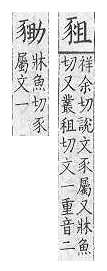 豠
祥余切說文豕屬又牀魚
切又叢租切文一重音二
牀魚切豕
屬文一